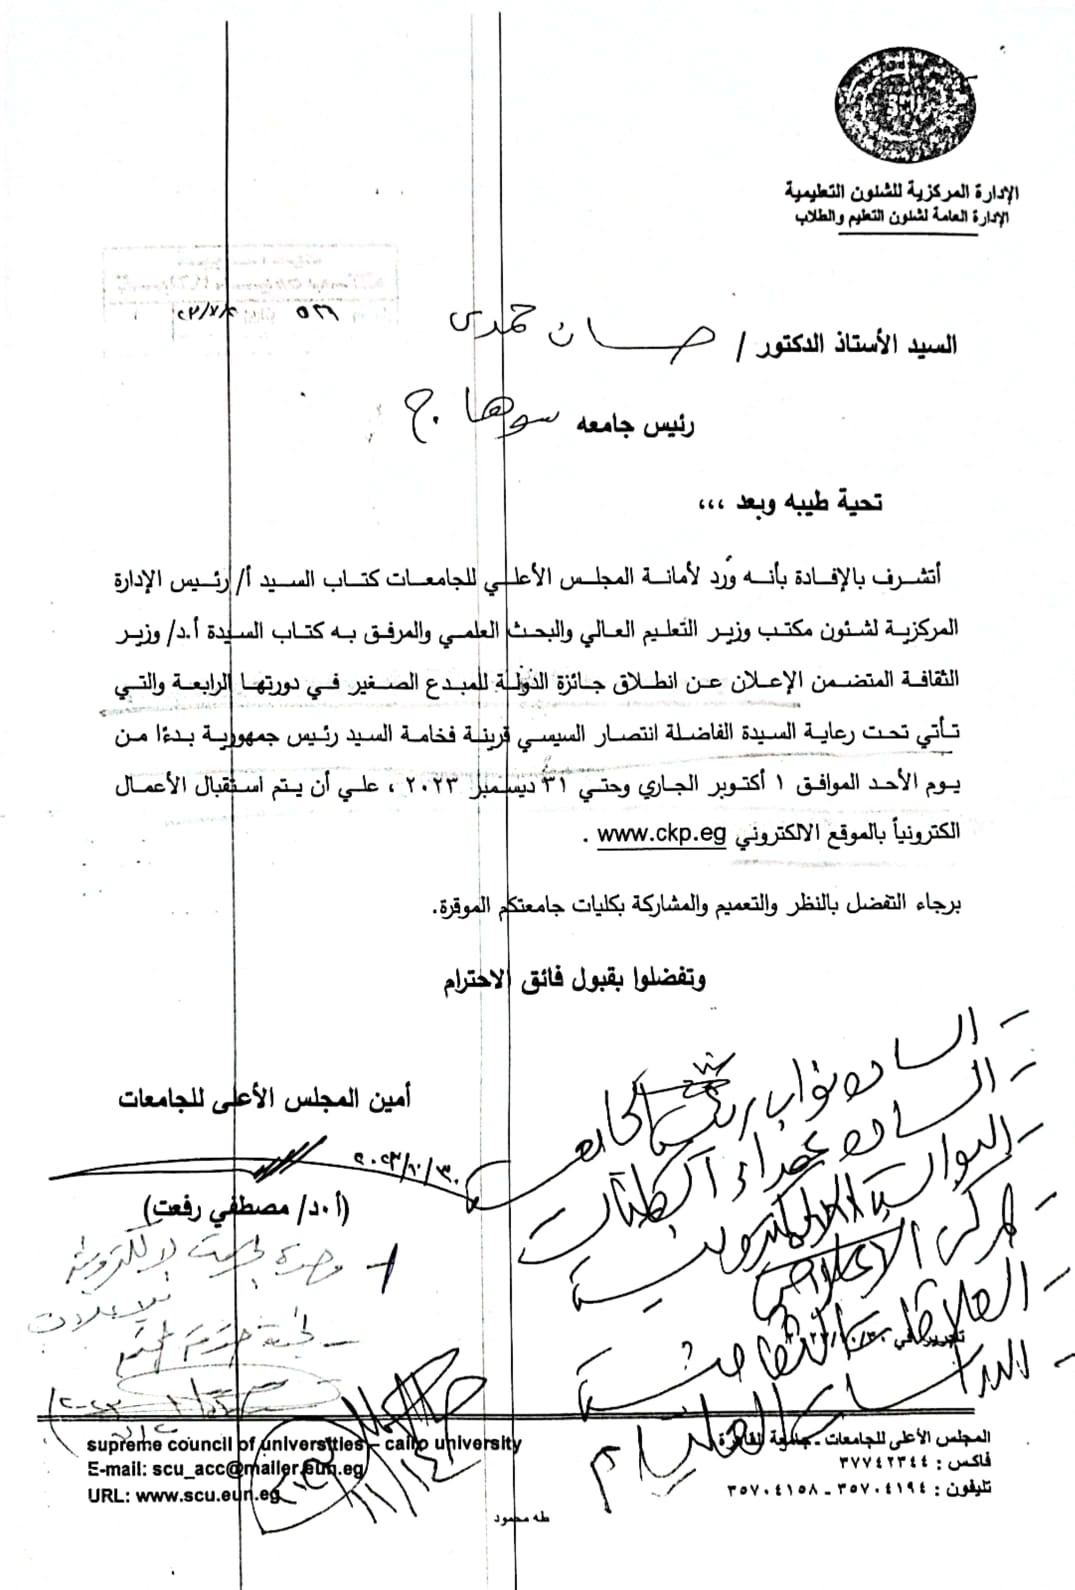 الإدارة المركزية للشئون التعليمية
الإدارة العامة لشئون التعليم والطلاب
السيد الأستاذ الدكتور / حسان حمدى
رئيس جامعه سوهاج
تحية طيبه وبعد ،،،
أتشرف بالإفادة بأنه وُرد لأمانة المجلس الأعلي للجامعات كتاب السيد أ/ رئيس الإدارة
المركزية لشئون مكتب وزير التعليم العالي والبحث العلمي والمرفق به كتاب السيدة أ.د/ وزير
الثقافة المتضمن الإعلان عن انطلاق جائزة الدولة للمبدع الصغير في دورتها الرابعة والتي
تأتي تحت رعاية السيدة الفاضلة انتصار السيسي قرينة فخامة السيد رئيس جمهورية بدءًا من
يوم الأحد الموافق ١ أكتوبر الجاري وحتي ٣١ ديسمبر ٢٠٢٣ ، علي أن يتم استقبال الأعمال
الكترونياً بالموقع الالكتروني www.ckp.eg .
برجاء التفضل بالنظر والتعميم والمشاركة بكليات جامعتكم الموقرة.
وتفضلوا بقبول فائق الاحترام
أمين المجلس الأعلى للجامعات
٢٠٢٣/١٠/٣٠
(أ.د/ مصطفي رفعت)
- الساده نواب رئيس الجامعة
- الساده عمداء الكليات
- البوابة الالكترونية
- مركز الإعلام
- العلاقات الثقافية
تحريراً في
المجلس الأعلى للجامعات ـ جامعة القاهرة
فاكس : ٣٧٧٤٢٣٤٤
تليفون : ٣٥٧٠٤١٩٤ ـ ٣٥٧٠٤١٥٨
supreme council of universities – cairo university
E-mail: scu_acc@mailer.eun.eg
URL: www.scu.eun.eg
طه محمود